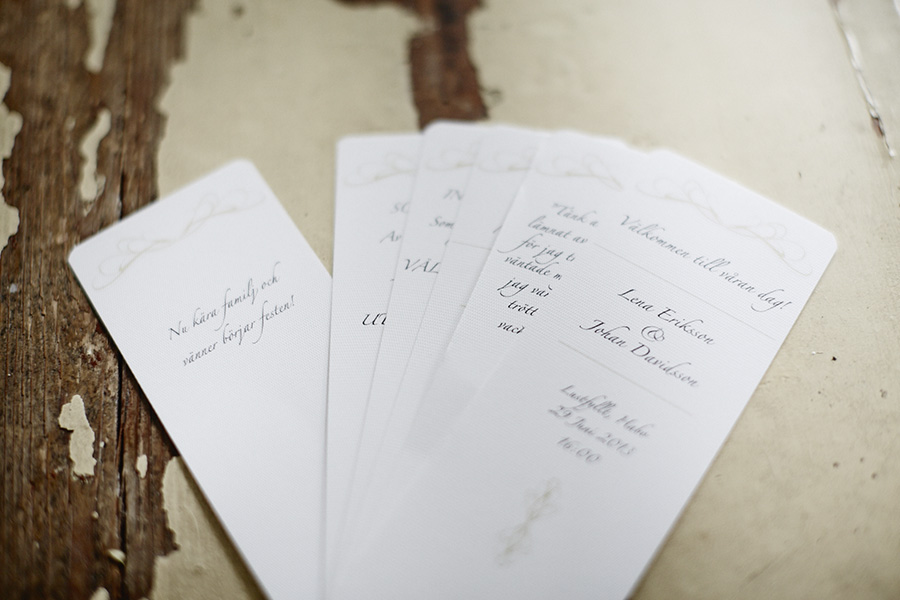 Nu kära familj och
vänner börjar festen!
Som
VÄL
"Tänk a
lämnat av
för jag t
väntade m
jag var
trött
Välkommen till våran dag!
Lena Eriksson
&
Johan Davidsson
Habo
29 Juni 2013
16.00